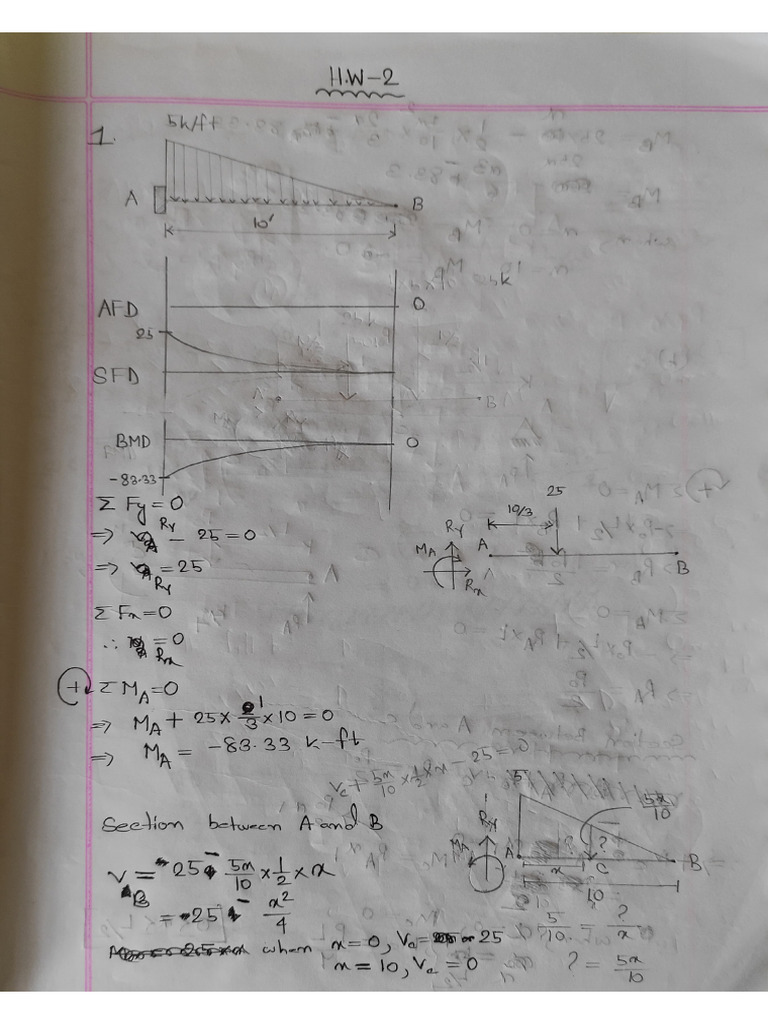 H.W-2
1.
5k/ft
A
B
10'
AFD
0
25
SFD
BMD
0
-83.33
Σ Fy = 0
⇒ Ry - 25 = 0
⇒ Ry = 25
Σ Fx = 0
∴ Rx = 0
(+) Σ MA = 0
⇒ MA + 25 × 1/3 × 10 = 0
⇒ MA = -83.33 k-ft
25
10/3
Ry
MA
A
B
Rx
Vc + 5x/10 × 1/2 × x - 25 = 0
Section between A and B
V = 25 - 5x/10 × 1/2 × x
= 25 - x²/4
when x = 0, Vc = 25
x = 10, Vc = 0
5
5x/10
?
MA
A
x
C
B
10
5/10 = ?/x
? = 5x/10